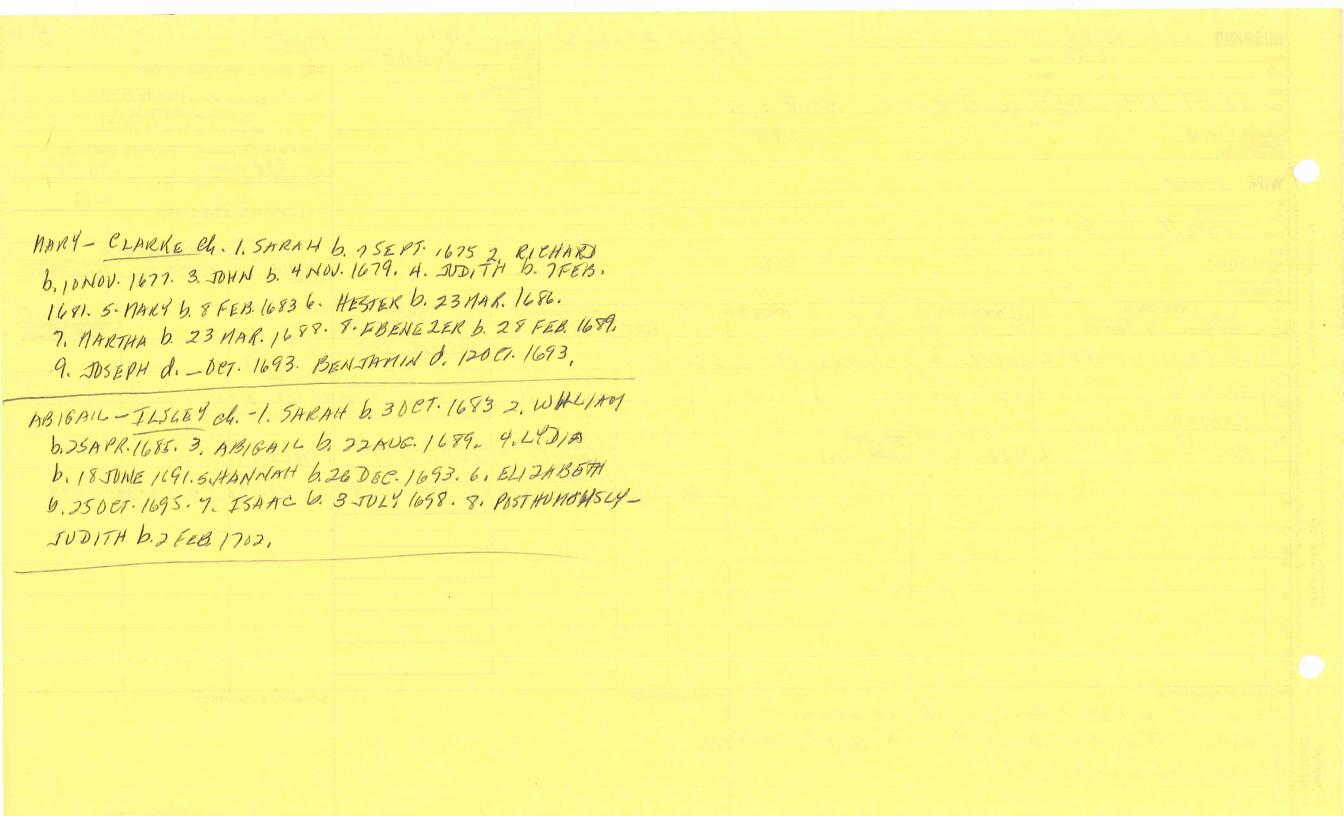 MARY - CLARKE ch. 1. SARAH b. 7 SEPT. 1675 2. RICHARD
b. 10 NOV. 1677. 3. JOHN b. 4 NOV. 1679. 4. JUDITH b. 7 FEB.
1681. 5. MARY b. 8 FEB. 1683 6. HESTER b. 23 MAR. 1686.
7. MARTHA b. 23 MAR. 1688. 8. EBENEZER b. 28 FEB. 1689.
9. JOSEPH d. _ OCT. 1693. BENJAMIN d. 12 OCT. 1693.
ABIGAIL - ILSLEY ch. - 1. SARAH b. 3 OCT. 1683 2. WILLIAM
b. 25 APR. 1685. 3. ABIGAIL b. 22 AUG. 1689. 4. LYDIA
b. 18 JUNE 1691. 5. HANNAH b. 26 DEC. 1693. 6. ELIZABETH
b. 25 OCT. 1695. 7. ISAAC b. 3 JULY, 1698. 8. POSTHUMOUSLY -
JUDITH b. 2 FEB 1702.